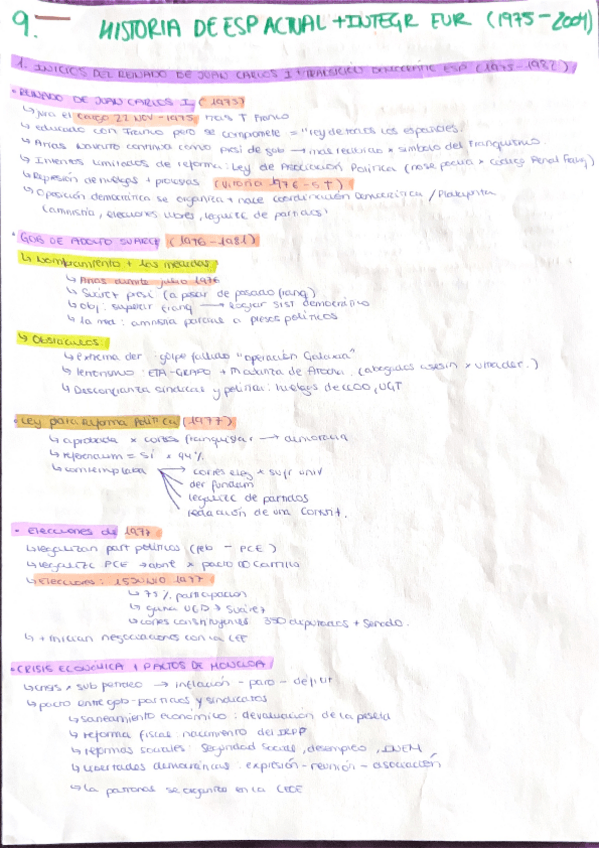 9.- HISTORIA DE ESP ACTUAL + INTEGR EUR (1975-2004)
1. INICIOS DEL REINADO DE JUAN CARLOS I + TRANSICIÓN DEMOCRÁTIC ESP (1975-1982)
• REINADO DE JUAN CARLOS I (1975)
↳ jura el cargo 22 NOV-1975 tras † Franco
↳ educado con Franco pero se compromete = "rey de todos los españoles.
↳ Arias Navarro continua como presi de gob → mas reducido × simbolo del Franquismo.
↳ Intentos limitados de reforma: Ley de Asociación Política (no se podia × código Penal Franq)
↳ Represión de huelgas + protestas (Vitoria 1976 - 5 †)
↳ Oposición democrática se organiza + nace Coordinación Democrática / Platajunta
(amnistía, elecciones libres, legaliz de partidos)
• GOB DE ADOLFO SUÁREZ (1976-1981)
↳ Nombramiento + 1as medidas:
↳ Arias dimite julio 1976
↳ Suárez presi (a pesar de pasado franq)
↳ obj: superar franq → lograr sist democrático
↳ 1a med: amnistía parcial a presos políticos
↳ Obstáculos:
↳ extrema der: golpe fallido "operación Galaxia"
↳ terrorismo: ETA-GRAPO + Matanza de Atocha (abogados asesin × ultrader.)
↳ Desconfianza sindical y política: huelgas de CCOO, UGT
• Ley para reforma Política (1977)
↳ aprobada × cortes franquistas → democracia
↳ referendum = sí × 94%
↳ contemplaba → cortes eleg × sufr univ
der fundam
legaliz de partidos
redacción de una Constit.
• Elecciones de 1977
↳ legalizan part políticos (feb - PCE)
↳ legaliz PCE → abril × pacto Carrillo
↳ Elecciones: 15 JUNIO 1977
↳ 77% participación
↳ gana UCD → Suárez
↳ cortes constituyentes 350 diputados + Senado.
↳ + inician negociaciones con la CEE
• CRISIS ECONOMICA + PACTOS DE MONCLOA
↳ crisis × sub petroleo → inflación - paro - déficit
↳ pacto entre gob-partidos y sindicatos
↳ saneamiento económico: devaluación de la peseta
↳ reforma fiscal: nacimiento del IRPF
↳ reformas sociales: Seguridad Social, desempleo, INEM
↳ libertades democráticas: expresión-reunión-asociación
↳ La patronal se organiza en la CEOE